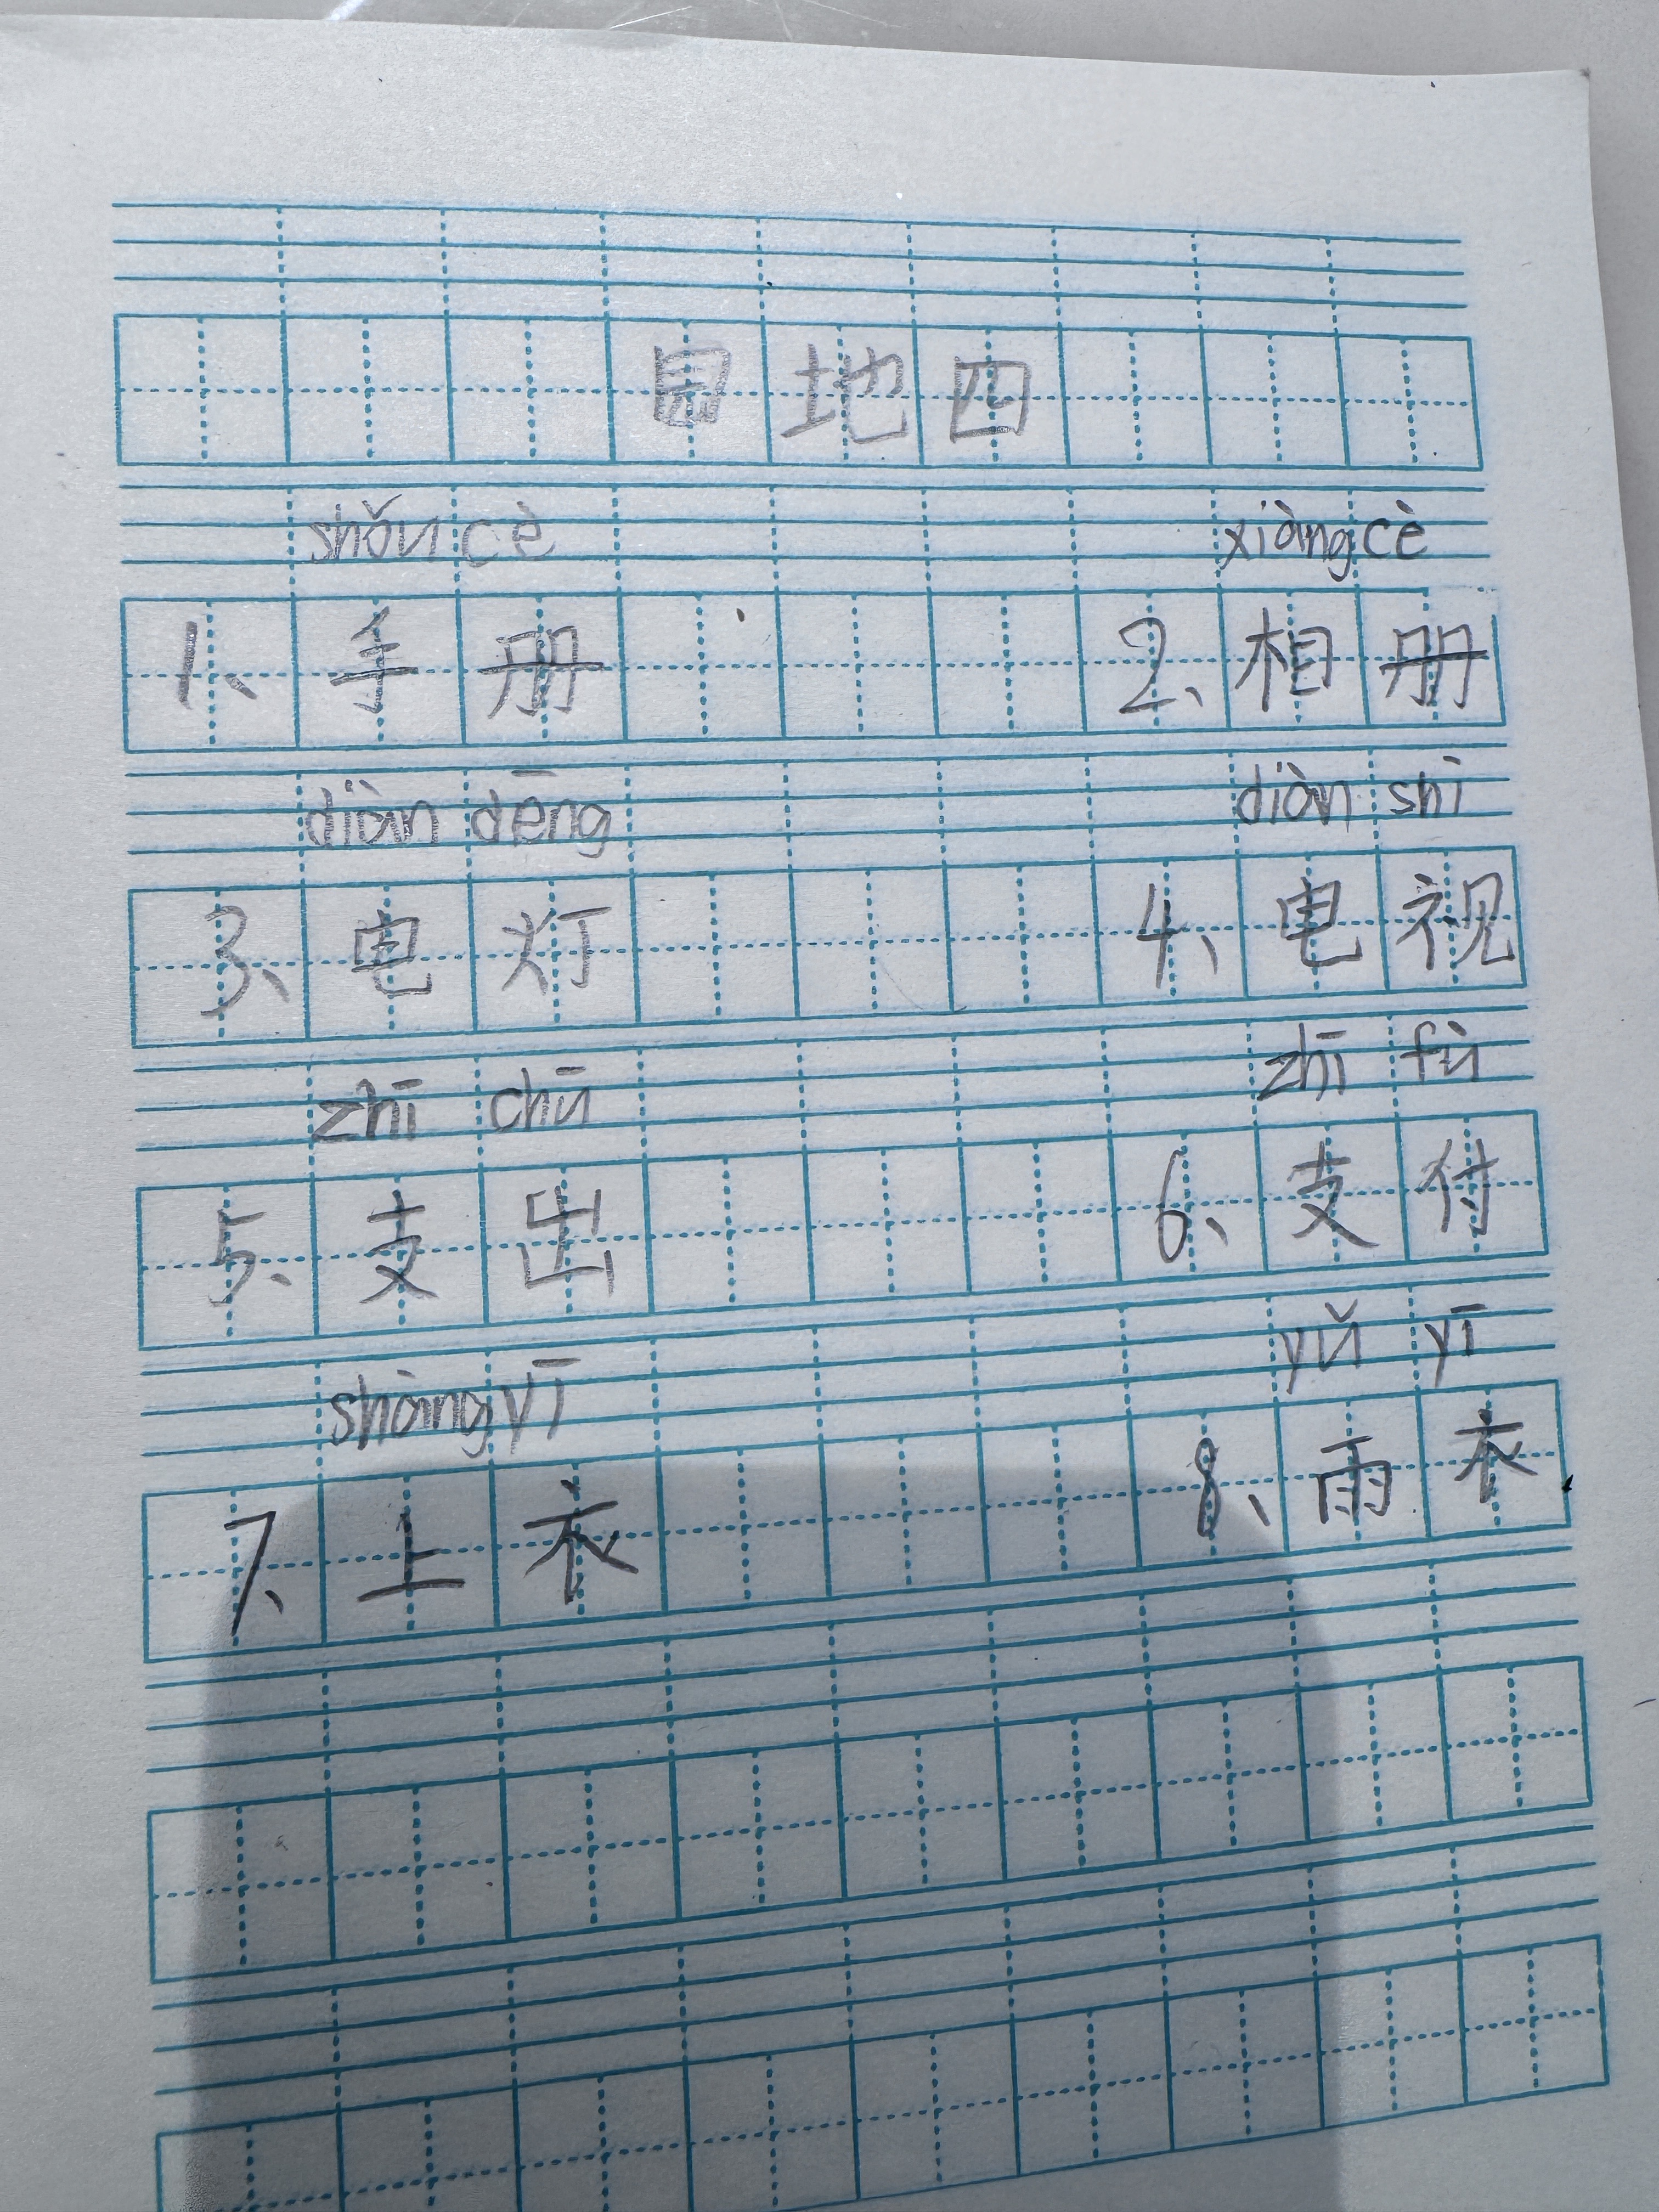 园地四
shǒu cè xiàng cè
1、手册 2、相册
diàn dēng diàn shì
3、电灯 4、电视
zhī chū zhī fù
5、支出 6、支付
shàng yī yǔ yī
7、上衣 8、雨衣